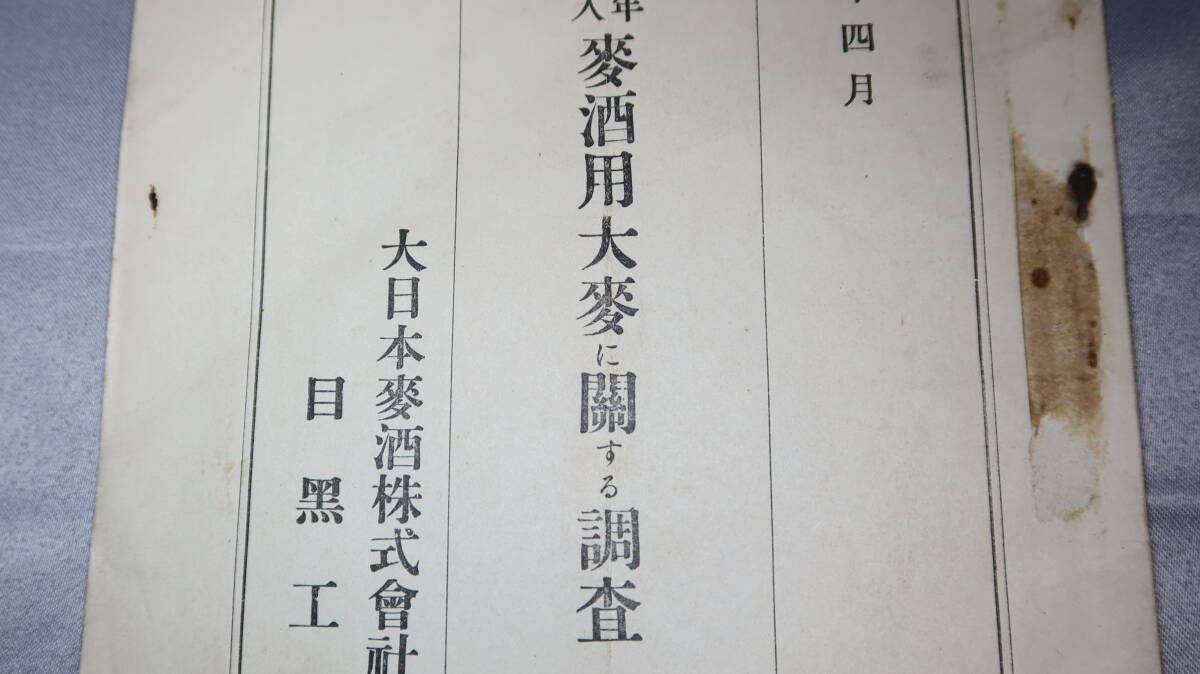 四月
年
麥酒用大麥に關する調査
大日本麥酒株式會社
目黑工